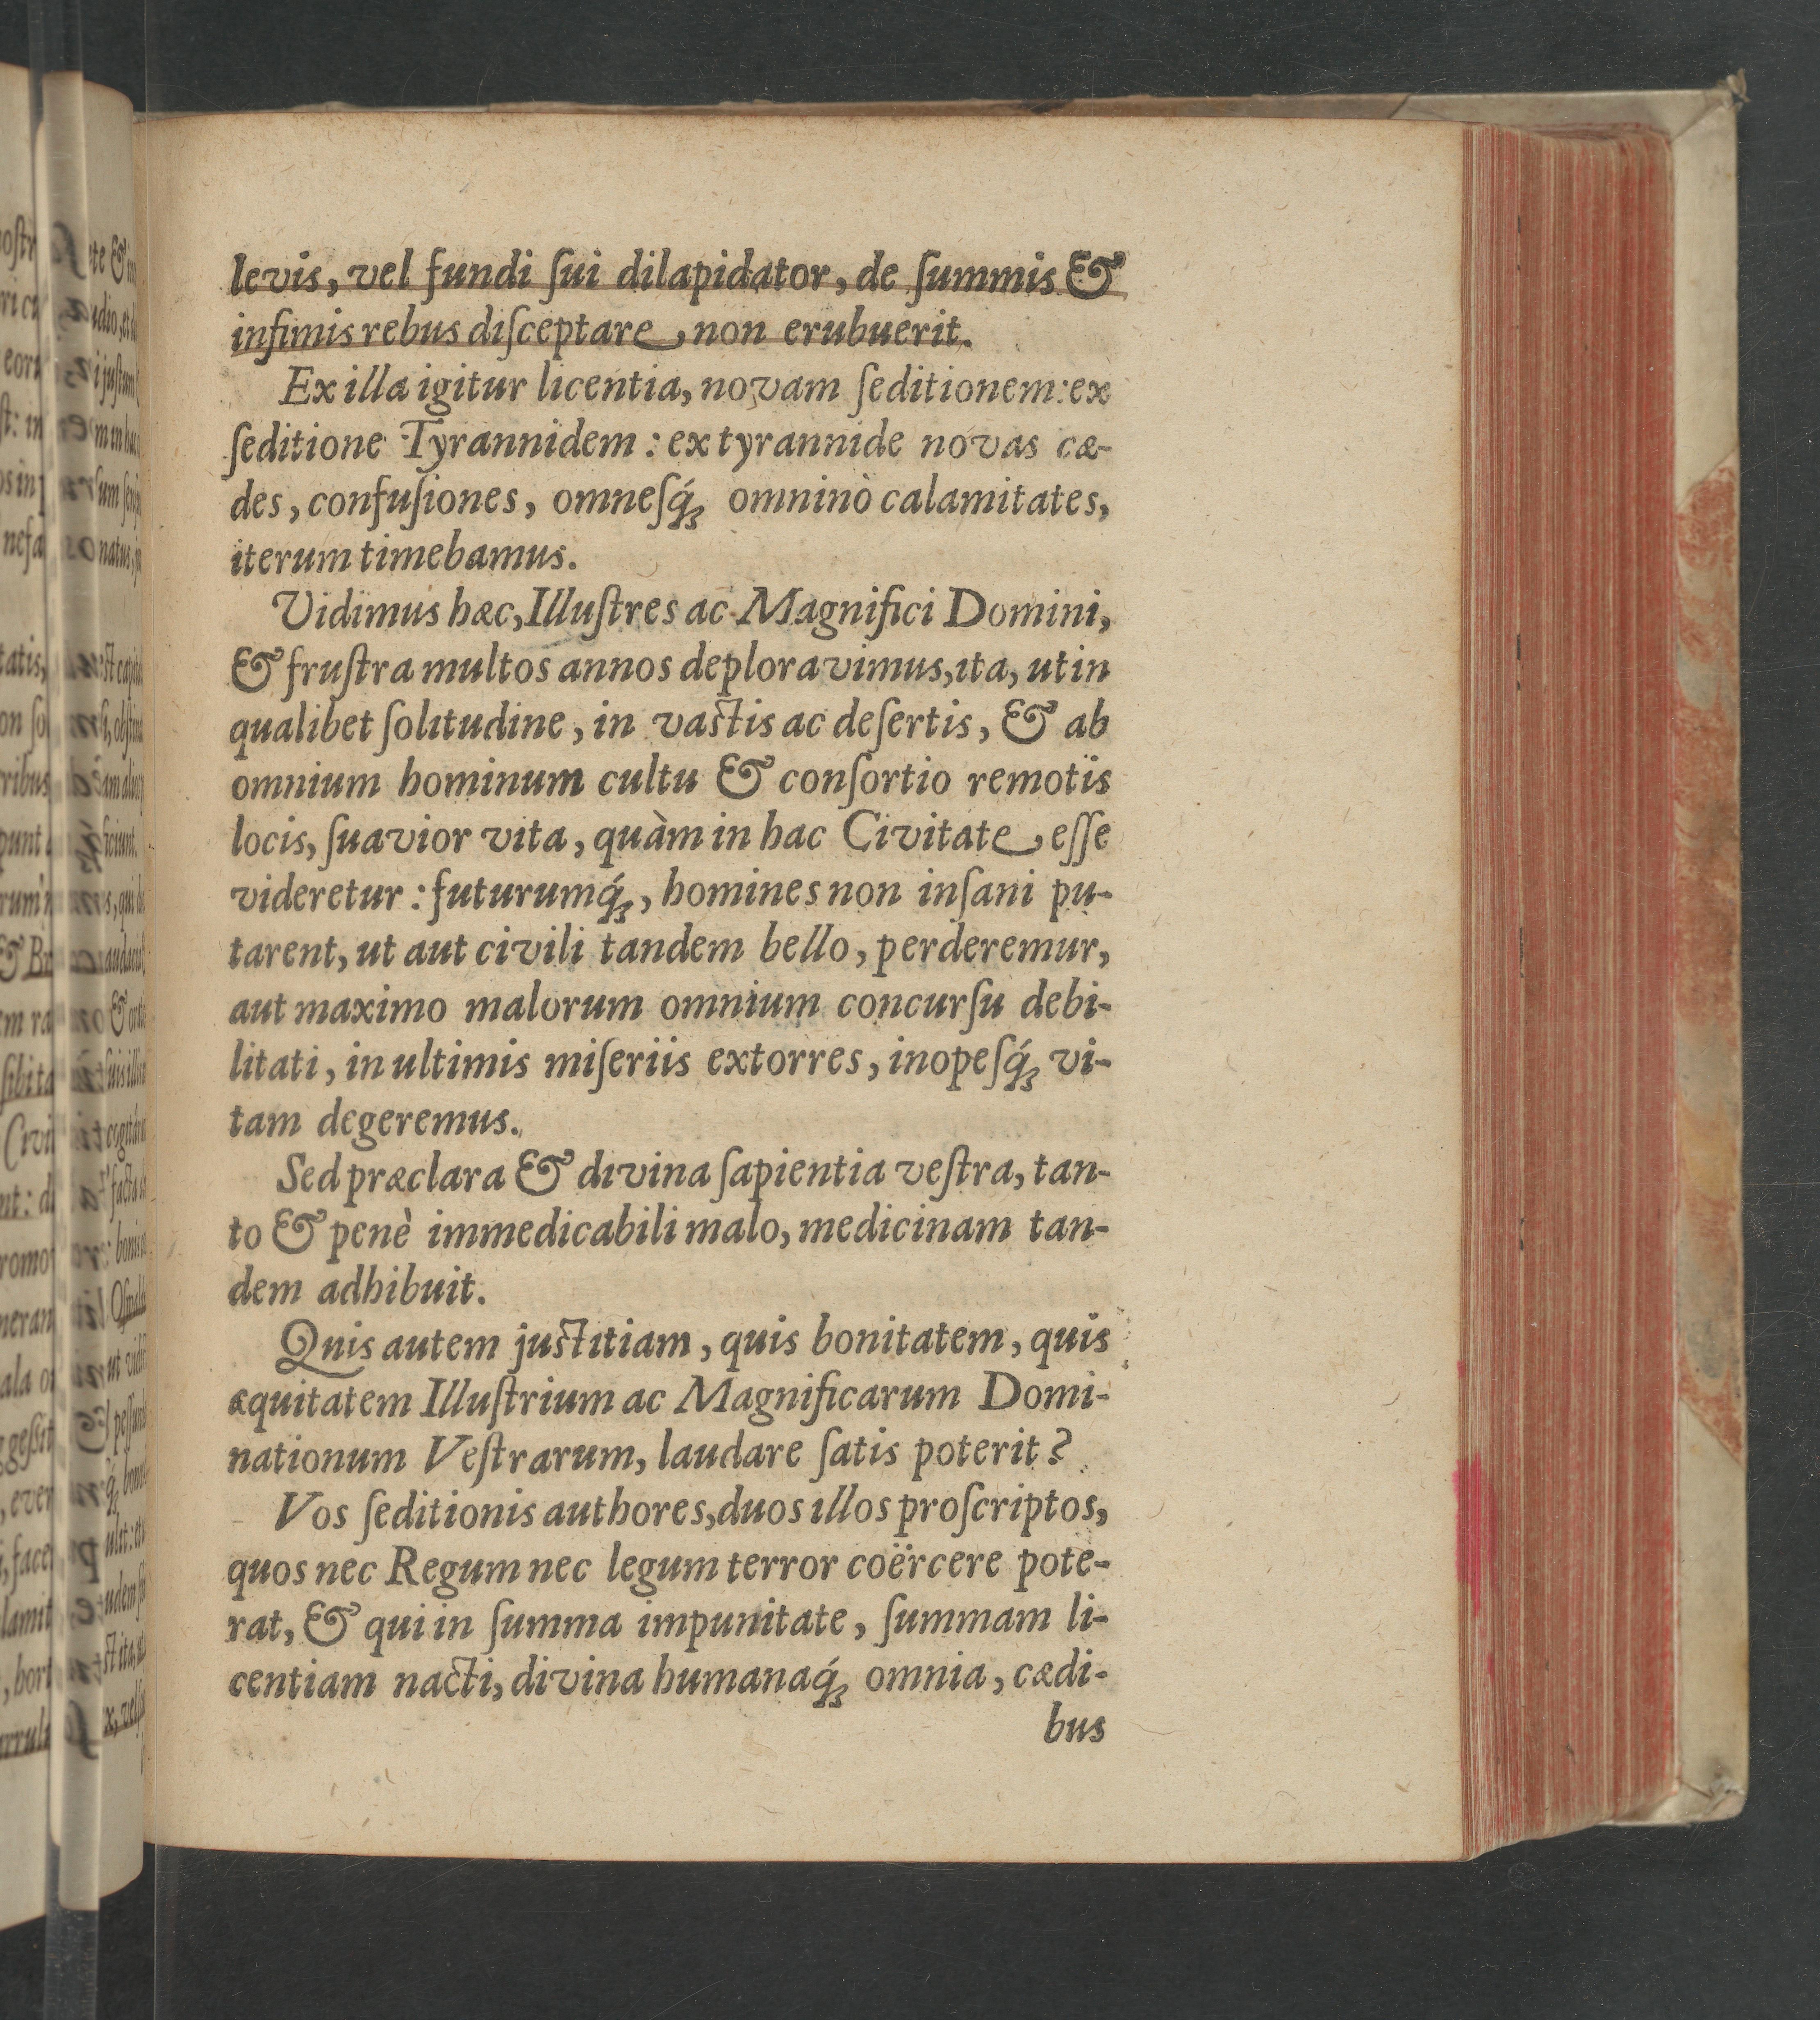 levis, vel fundi ſui dilapidator, de ſummis &
infimis rebus diſceptare, non erubuerit.
Ex illa igitur licentia, novam ſeditionem: ex
ſeditione Tyrannidem: ex tyrannide novas cæ-
des, confuſiones, omneſq́; omninò calamitates,
iterum timebamus.
Vidimus hæc, Illuſtres ac Magnifici Domini,
& fruſtra multos annos deploravimus, ita, ut in
qualibet ſolitudine, in vastis ac deſertis, & ab
omnium hominum cultu & conſortio remotis
locis, ſuavior vita, quàm in hac Civitate, eſſe
videretur: futurumq́;, homines non inſani pu-
tarent, ut aut civili tandem bello, perderemur,
aut maximo malorum omnium concurſu debi-
litati, in ultimis miſeriis extorres, inopeſq́; vi-
tam degeremus.
Sed præclara & divina ſapientia veſtra, tan-
to & penè immedicabili malo, medicinam tan-
dem adhibuit.
Quis autem justitiam, quis bonitatem, quis
æquitatem Illuſtrium ac Magnificarum Domi-
nationum Veſtrarum, laudare ſatis poterit?
Vos ſeditionis authores, duos illos proſcriptos,
quos nec Regum nec legum terror coërcere pote-
rat, & qui in ſumma impunitate, ſummam li-
centiam nacti, divina humanaq́; omnia, cædi-
bus